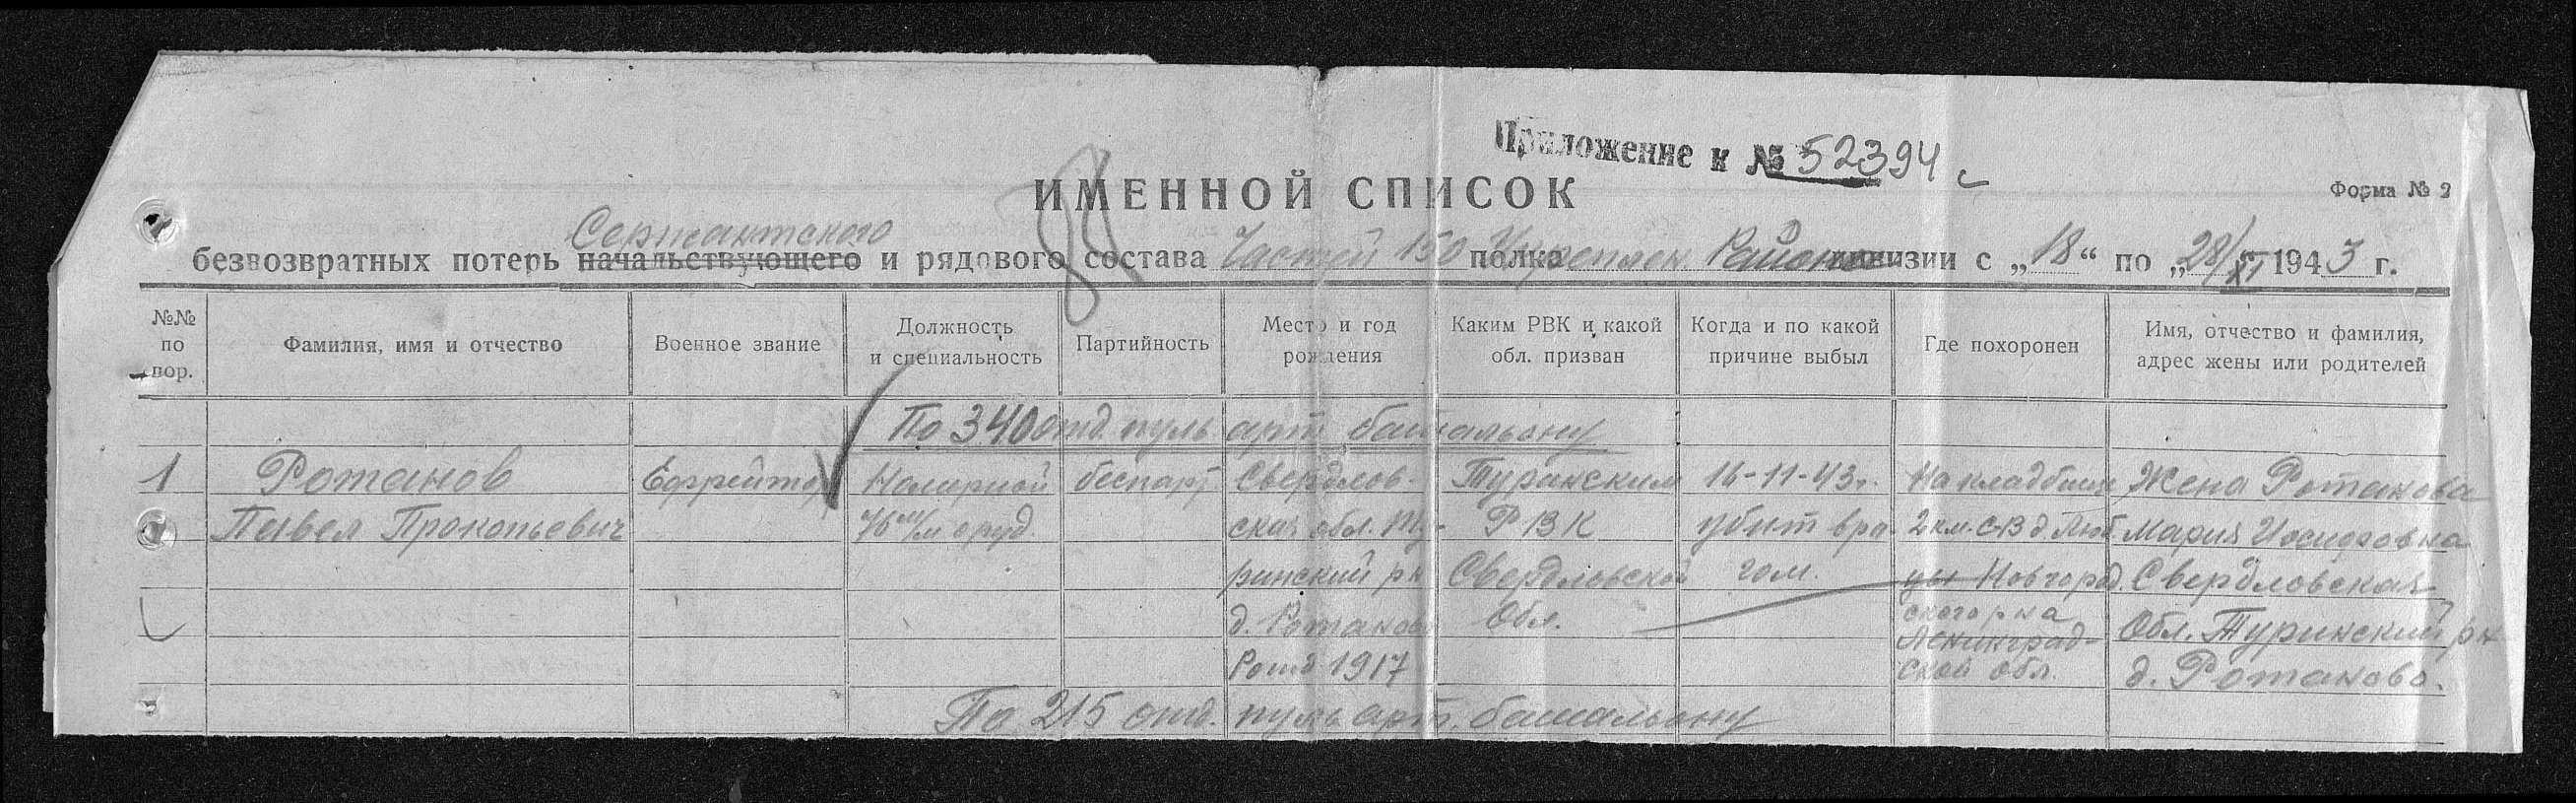 Приложение к № 52394 с
ИМЕННОЙ СПИСОК
Форма № 2
Сержантского
безвозвратных потерь начальствующего и рядового состава Частей 150 полка Укреплен. Района дивизии с „18“ по „28/XI 1943 г.
№№ по пор.
Фамилия, имя и отчество
Военное звание
Должность и специальность
Партийность
Место и год рождения
Каким РВК и какой обл. призван
Когда и по какой причине выбыл
Где похоронен
Имя, отчество и фамилия, адрес жены или родителей
По 340 отд. пуль арт батальону
1 Ротанов Ефрейтор беспарт Свердлов- Туринским 16-11-43г. На кладбище Жена Ротанова
Павел Прокопьевич 76 м/м оруд. ская обл. Ту- РВК убит вра- 2 км. СВ д. Люб- Мария
ринский рн Свердловской гом. цы Новгород. Свердловская
д. Ротаново Обл. ского рна Обл. Туринский рн
Ленинград-
Рожд 1917 ской обл. д. Ротаново.
По 215 отд. пуль арт. батальону